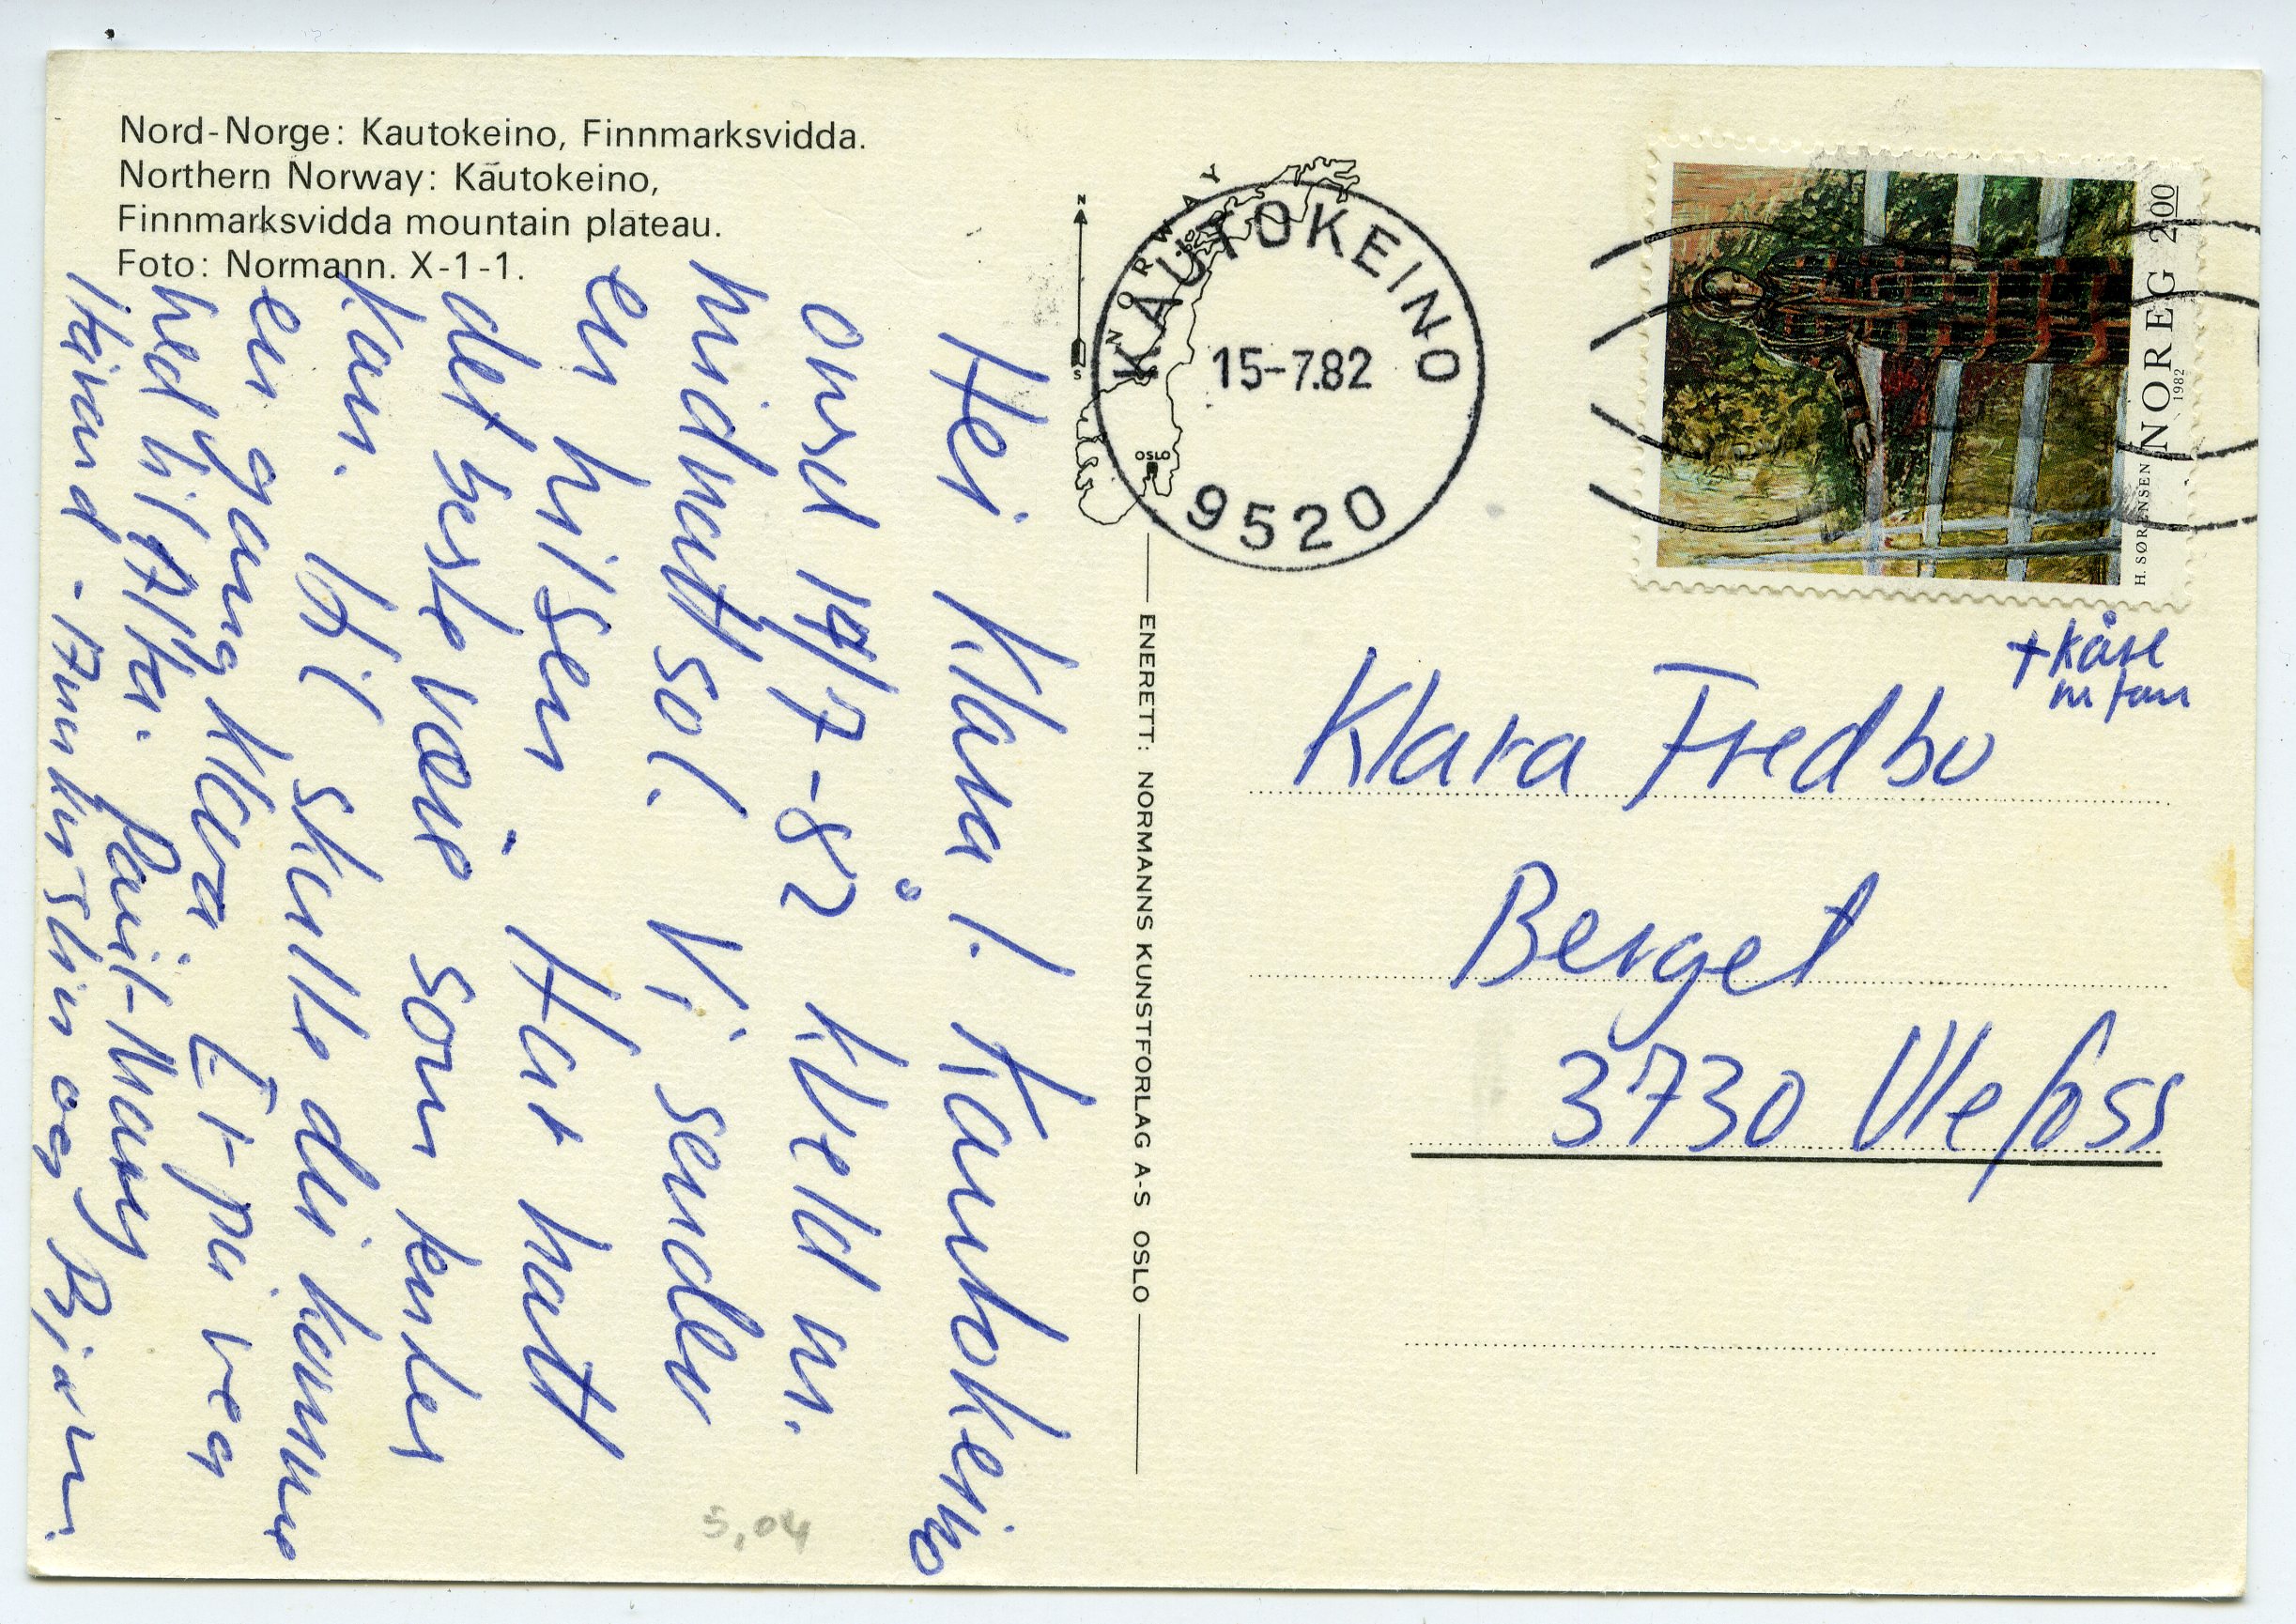 Nord-Norge: Kautokeino, Finnmarksvidda.
Northern Norway: Kautokeino,
Finnmarksvidda mountain plateau.
Foto: Normann. X-1-1.
Hei Klara! Kautokeino
onsd 14/7-82 kveld m.
midnattsol. Vi sender
en hilsen. Har hatt
det beste været som tenkes
kan. Vi skulle du kommet
en gang Klara. Et på veg
ned til Alta. Marit-Mary
Håvard - Ann kristin og Bjørn.
5,04
N
S
NORWAY
OSLO
KAUTOKEINO
15-7.82
9520
ENERETT: NORMANNS KUNSTFORLAG A-S OSLO
NOREG 2,00
1982
H. SØRENSEN
+ Kåre
m/fam
Klara Fredbo
Berget
3730 Ulefoss